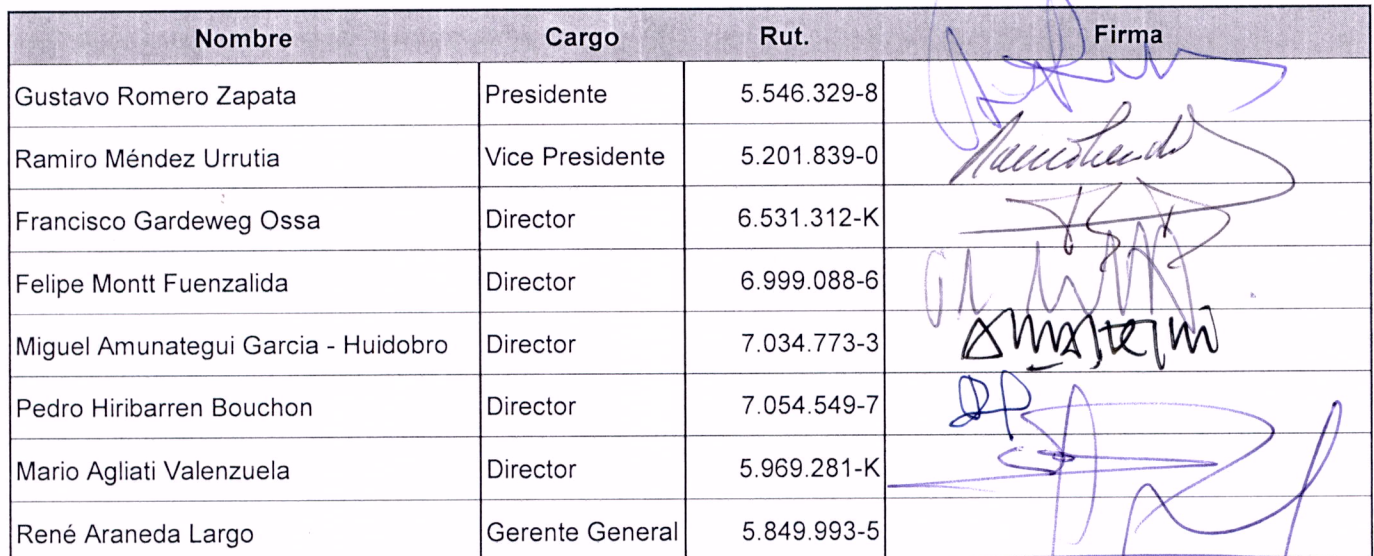 Nombre Cargo Rut. Firma
Gustavo Romero Zapata Presidente 5.546.329-8
Ramiro Méndez Urrutia Vice Presidente 5.201.839-0
Francisco Gardeweg Ossa Director 6.531.312-K
Felipe Montt Fuenzalida Director 6.999.088-6
Miguel Amunategui Garcia - Huidobro Director 7.034.773-3
Pedro Hiribarren Bouchon Director 7.054.549-7
Mario Agliati Valenzuela Director 5.969.281-K
René Araneda Largo Gerente General 5.849.993-5